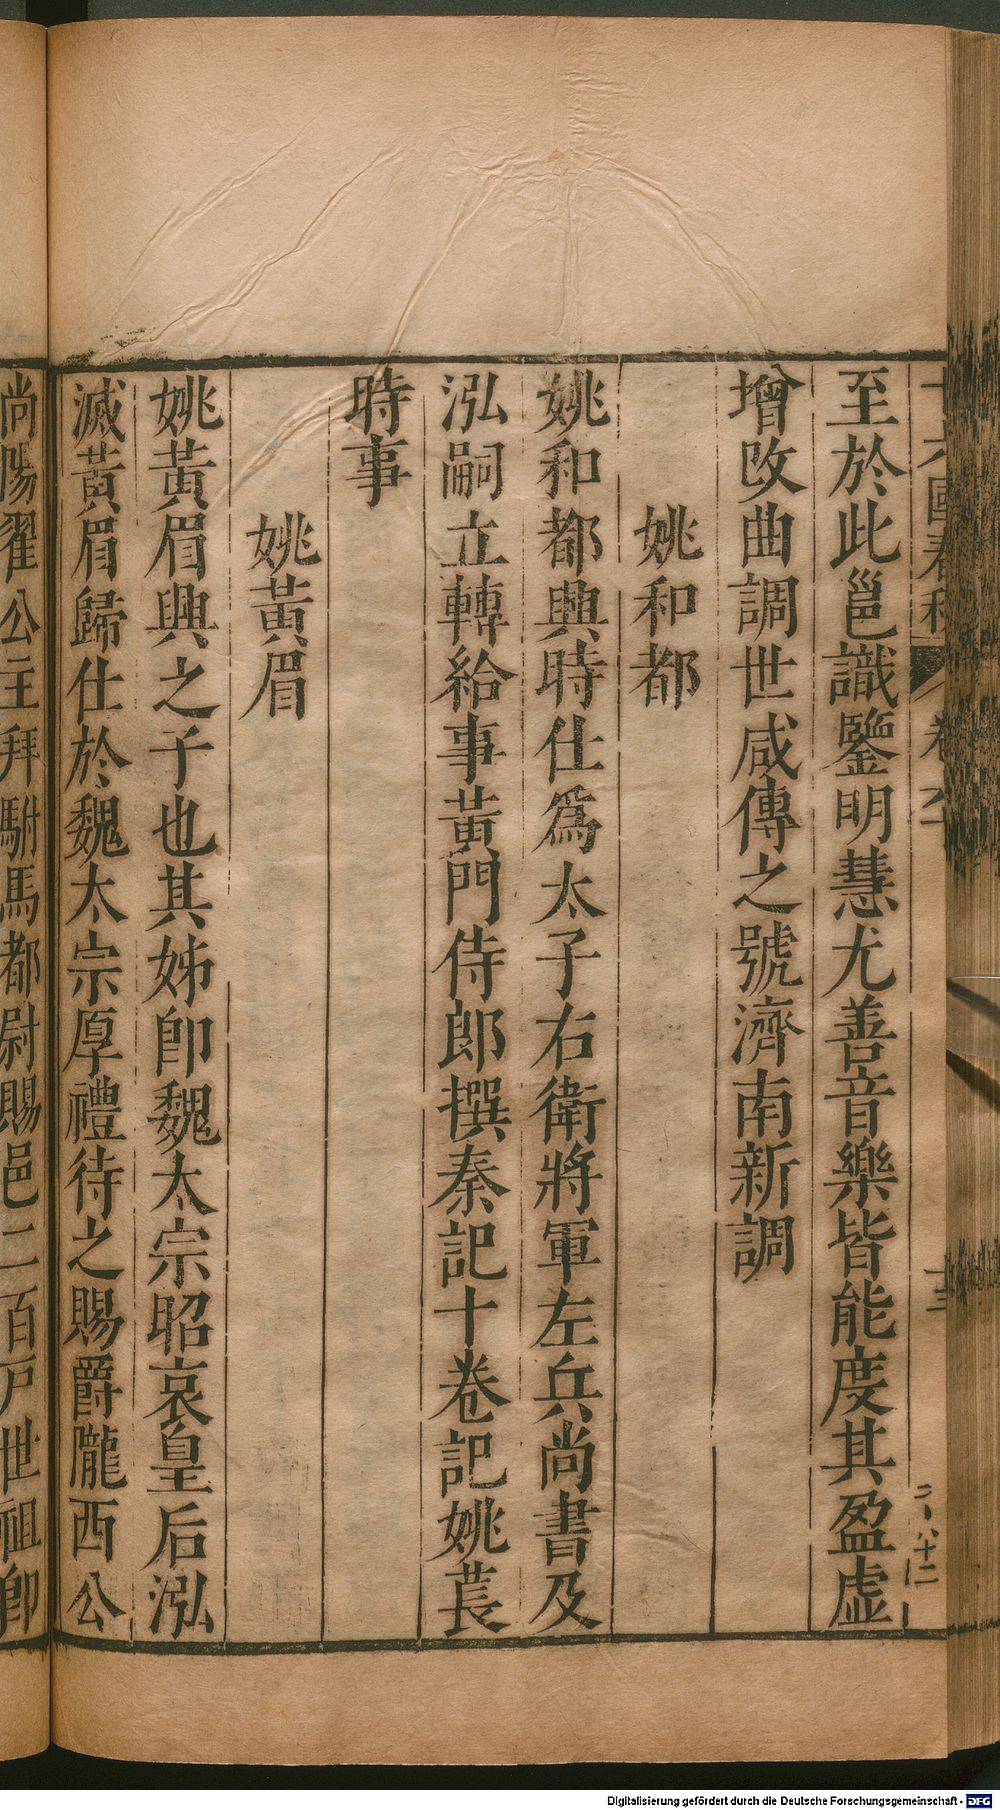 至於此邕識鑒明慧尤善音樂皆能度其盈虛
增改曲調世咸傳之號濟南新調
姚和都
姚和都興時仕爲太子右衛將軍左兵尚書及
泓嗣立轉給事黃門侍郎撰秦記十卷記姚萇
時事
姚黃眉
姚黃眉興之子也其姊卽魏太宗昭哀皇后泓
滅黃眉歸仕於魏太宗厚禮待之賜爵隴西公
尚陽翟公主拜駙馬都尉賜邑二百戶世祖卽
Digitalisierung gefördert durch die Deutsche Forschungsgemeinschaft - DFG